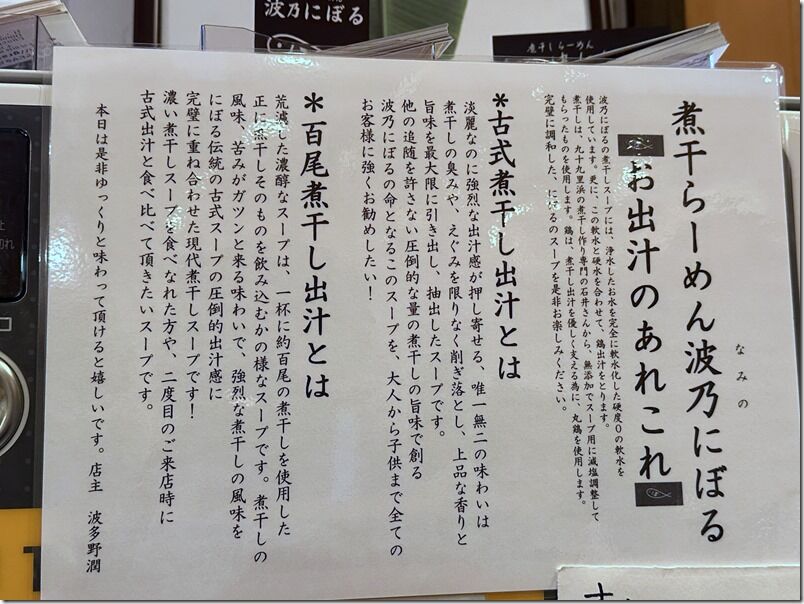 波乃にぼる
煮干しらーめん
煮干らーめん波乃にぼる
なみの
お出汁のあれこれ
波乃にぼるの煮干しスープには、浄水したお水を完全に軟水化した硬度0の軟水を
使用しています。更に、この軟水と硬水を合わせて、鶏出汁をとります。
煮干しは、九十九里浜の煮干し作り専門の石井さんから、無添加でスープ用に減塩調整して
もらったものを使用します。鶏は、煮干し出汁を優しく支える為に、丸鶏を使用します。
完璧に調和した、にぼるのスープを是非お楽しみください。
*古式煮干し出汁とは
淡麗なのに強烈な出汁感が押し寄せる、唯一無二の味わいは
煮干しの臭みや、えぐみを限りなく削ぎ落とし、上品な香りと
旨味を最大限に引き出し、抽出したスープです。
他の追随を許さない圧倒的な量の煮干しの旨味で創る
波乃にぼるの命となるこのスープを、大人から子供まで全ての
お客様に強くお勧めしたい!
*百尾煮干し出汁とは
荒濾した濃醇なスープは、一杯に約百尾の煮干しを使用した
正に煮干しそのものを飲み込むかの様なスープです。煮干しの
風味、苦みがガツンと来る味わいで、強烈な煮干しの風味を
にぼる伝統の古式スープの圧倒的出汁感に
完璧に重ね合わせた現代煮干しスープです!
濃い煮干しスープを食べなれた方や、二度目のご来店時に
古式出汁と食べ比べて頂きたいスープです。
本日は是非ゆっくりと味わって頂けると嬉しいです。店主 波多野潤